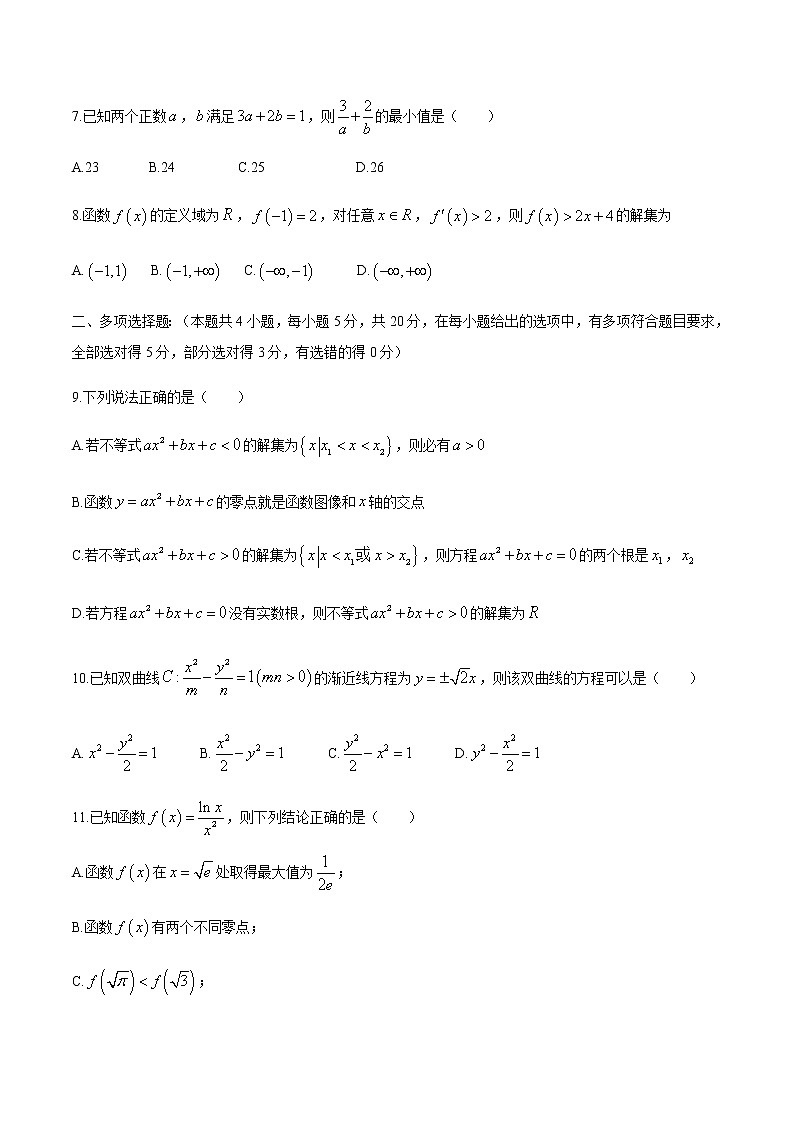 7.已知两个正数 a，b 满足 3a+2b=1，则 3/a + 2/b 的最小值是（　　）
A.23　　B.24　　C.25　　D.26
8.函数 f(x) 的定义域为 R，f(−1)=2，对任意 x∈R，f′(x)>2，则 f(x)>2x+4 的解集为
A.(−1,1)　B.(−1,+∞)　C.(−∞,−1)　D.(−∞,+∞)
二、多项选择题:（本题共 4 小题，每小题 5 分，共 20 分，在每小题给出的选项中，有多项符合题目要求，
全部选对得 5 分，部分选对得 3 分，有选错的得 0 分）
9.下列说法正确的是（　　）
A.若不等式 ax²+bx+c<0 的解集为{x|x₁<x<x₂}，则必有 a>0
B.函数 y=ax²+bx+c 的零点就是函数图像和 x 轴的交点
C.若不等式 ax²+bx+c>0 的解集为{x|x<x₁或 x>x₂}，则方程 ax²+bx+c=0 的两个根是 x₁，x₂
D.若方程 ax²+bx+c=0 没有实数根，则不等式 ax²+bx+c>0 的解集为 R
10.已知双曲线 C: x²/m − y²/n =1(mn>0) 的渐近线方程为 y=±√2x，则该双曲线的方程可以是（　　）
A. x² − y²/2 =1　　B. x²/2 − y²=1　　C. y²/2 − x²=1　　D. y² − x²/2 =1
11.已知函数 f(x)= ln x/x²，则下列结论正确的是（　　）
A.函数 f(x) 在 x=√e 处取得最大值为 1/2e；
B.函数 f(x) 有两个不同零点；
C. f(√π)<f(√3)；